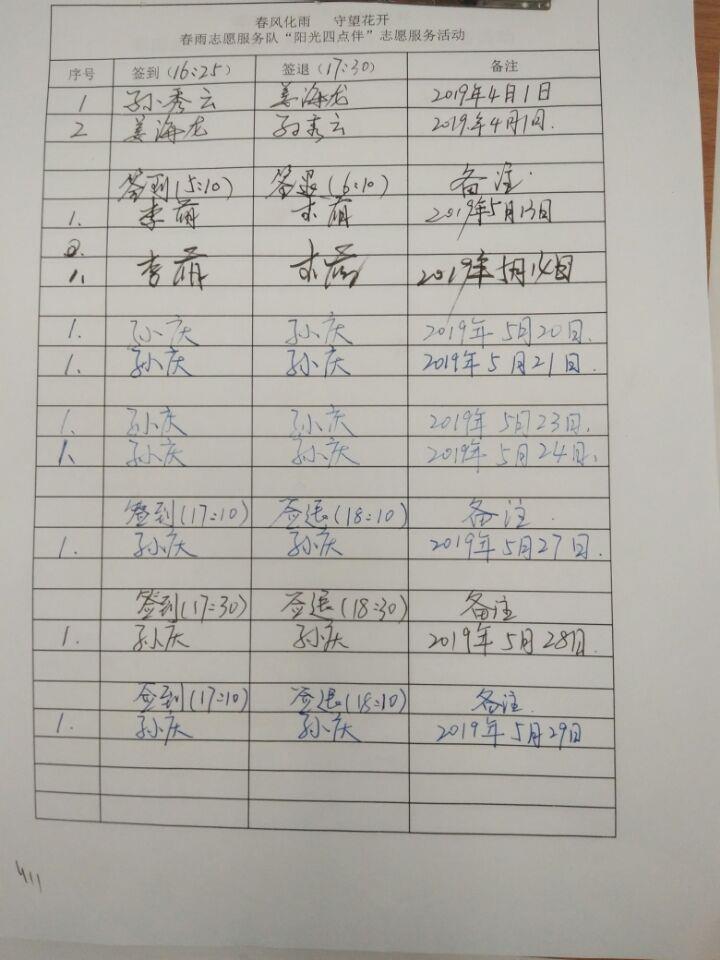 春风化雨 守望花开
春雨志愿服务队“阳光四点伴”志愿服务活动
序号 签到(16:25) 签退(17:30) 备注
1 孙秀云 姜海龙 2019年4月1日
2 姜海龙 孙秀云 2019年4月1日.
签到(5:10) 签退(6:10) 备注.
1. 李萌 李萌 2019年5月13日
2.
1. 李萌 李萌 2019年5月14日
1. 孙庆 孙庆 2019年5月20日.
1. 孙庆 孙庆 2019年5月21日.
1. 孙庆 孙庆 2019年5月23日.
1. 孙庆 孙庆 2019年5月24日.
签到(17:10) 签退(18:10) 备注.
1. 孙庆 孙庆 2019年5月27日.
签到(17:30) 签退(18:30) 备注
1. 孙庆 孙庆 2019年5月28日.
签到(17:10) 签退(18:10) 备注.
1. 孙庆 孙庆 2019年5月29日